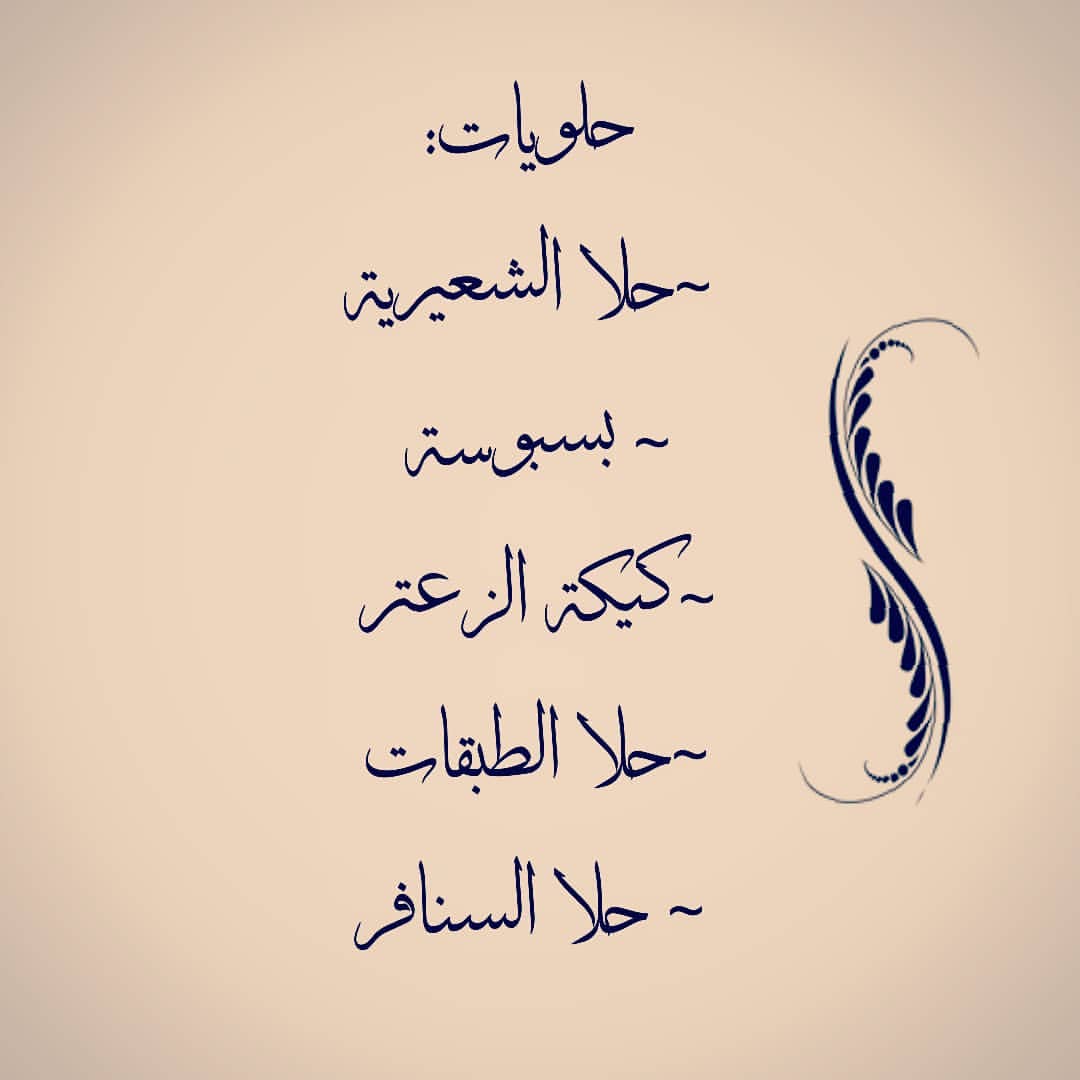 حلويات:
~حلا الشعيرية
~ بسبوسة
~كيكة الزعتر
~حلا الطبقات
~ حلا السنافر